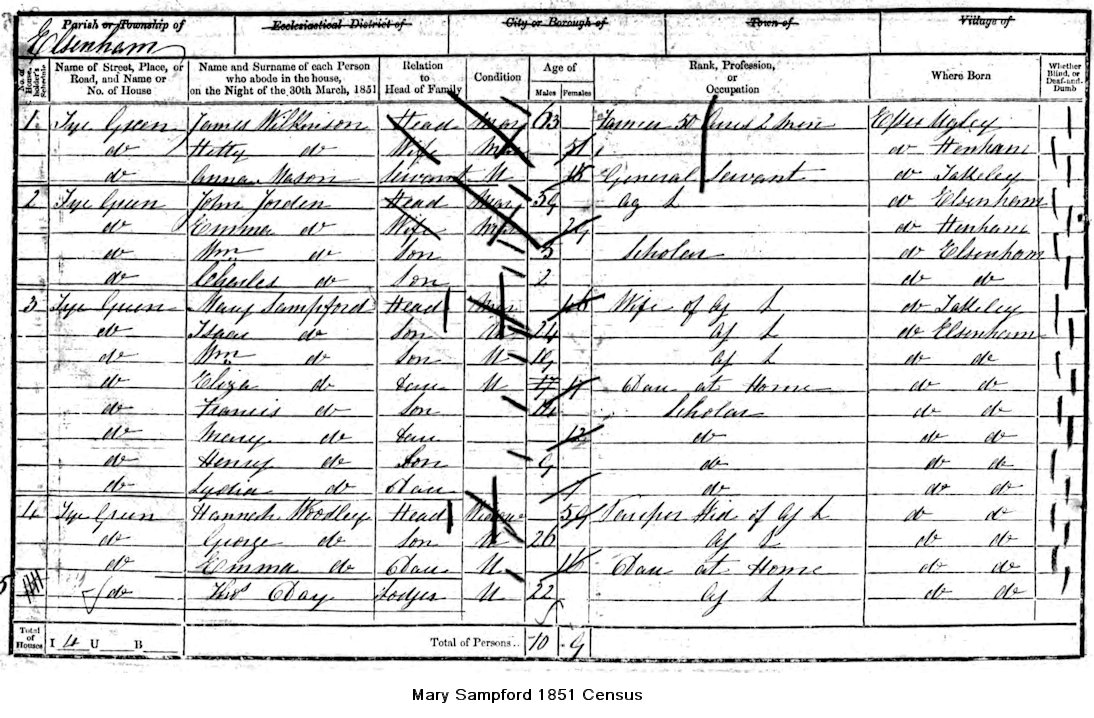 Parish or Township of Ecclesiastical District of City or Borough of Town of Village of
Elsenham
No. of House-holder's Schedule Name of Street, Place, or Road, and Name or No. of House Name and Surname of each Person who abode in the house, on the Night of the 30th March, 1851 Relation to Head of Family Condition Age of Males Females Rank, Profession, or Occupation Where Born Whether Blind, or Deaf-and-Dumb
1 Tye Green James Wilkinson Head Mar 63 Farmer 50 Acres 2 Men Essex Ugley
do Hetty do Wife Mar do Henham
do Anna Mason Servant U 18 General Servant do Takeley
2 Tye Green John Jorden Head Mar Ag L do Elsenham
do Emma do Wife Mar 29 do Henham
do Wm do Son 5 Scholar do Elsenham
do Charles do Son 2 do do
3 Tye Green Mary Sampford Head Mar Wife of Ag L do Takeley
do Isaac do Son U 24 Ag L do Elsenham
do Wm do Son U 19 Ag L do do
do Eliza do Dau U 17 17 Dau at Home do do
do Francis do Son 14 Scholar do do
do Mercy do Dau 12 do do do
do Henry do Son 9 do do do
do Lydia do Dau 7 do do do
4 Tye Green Hannah Woodley Head Widow 59 Pauper Wid of Ag L do do
do George do Son U 26 Ag L do do
do Emma do Dau U 16 Dau at Home do do
5 do Thos Day Lodger U 22 Ag L do do
Total of Houses I 4 U B Total of Persons.. 10 9
Mary Sampford 1851 Census